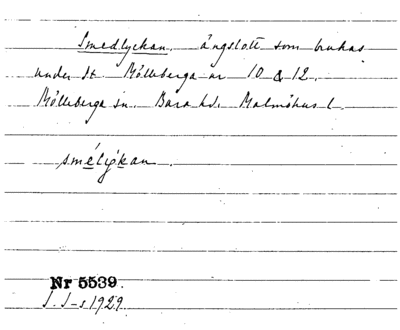 Smedlyckan. ängslott som brukas
under St. Mölleberga nr 10 & 12.
Mölleberga sn. Bara hd. Malmöhus l.
smélýkan.
Nr 5539.
J. J-s 1929